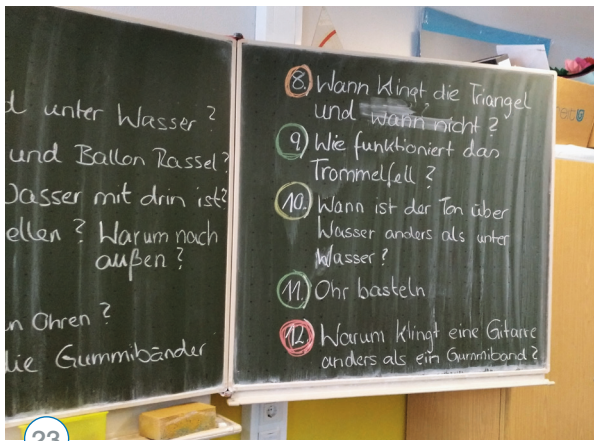 unter Wasser?
und Ballon Rassel?
Wasser mit drin ist?
ellen? Warum nach
außen?
n Ohren?
die Gummibänder
8. Wann klingt die Triangel
und wann nicht?
9. Wie funktioniert das
Trommelfell?
10. Wann ist der Ton über
Wasser anders als unter
Wasser?
11. Ohr basteln
12. Warum klingt eine Gitarre
anders als ein Gummiband?
23